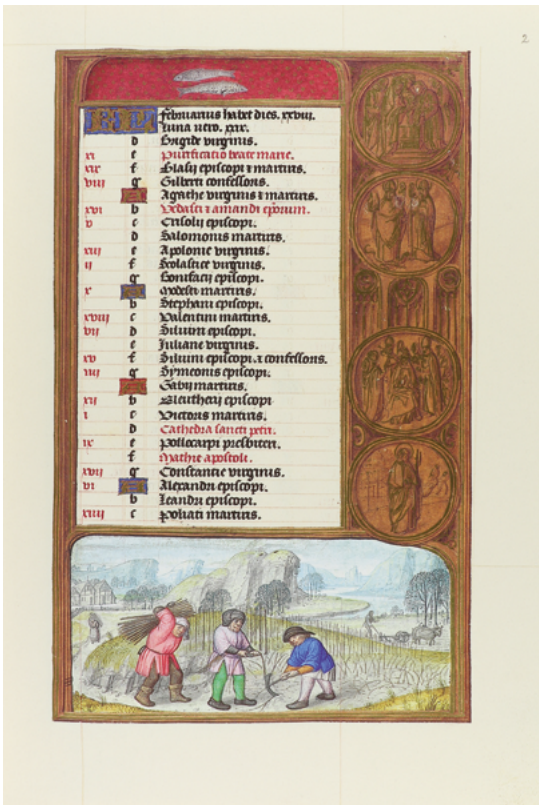 2
KL Februarius habet dies. xxviii.
Luna vero. xxix.
d Brigide virginis.
xi e Purificatio beate marie.
xix f Blasii episcopi ⁊ martiris.
viii g Gilberti confessoris.
A Agathe virginis ⁊ martiris.
xvi b Vedasti ⁊ amandi ep̄orum.
v c Crisolii episcopi.
d Salomonis martiris.
xiii e Apolonie virginis.
ii f Scolastice virginis.
g Bonifacii episcopi.
x A Modesti martiris.
b Stephani episcopi.
xviii c Valentini martiris.
vii d Silvini episcopi.
e Juliane virginis.
xv f Silvini episcopi. ⁊ confessoris.
iiii g Symeonis episcopi.
A Gabii martiris.
xii b Eleutherii episcopi
i c Victoris martiris.
d Cathedra sancti petri.
ix e Pollicarpi presbiteri.
f Mathie apostoli.
xvii g Constantie virginis.
vi A Alexandri episcopi.
b Leandri episcopi.
xiiii c Poliati martiris.